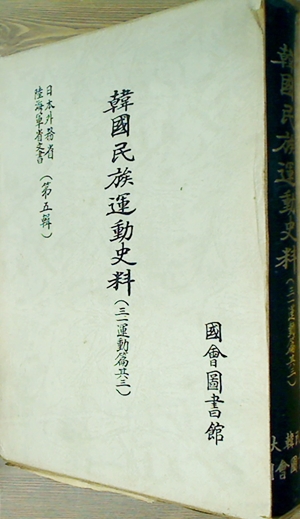 國會圖書館
韓國民族運動史料(三一運動篇其三)
日本外務省
陸海軍省文書
(第五輯)
韓國民族運動史料(三一運動篇其三)